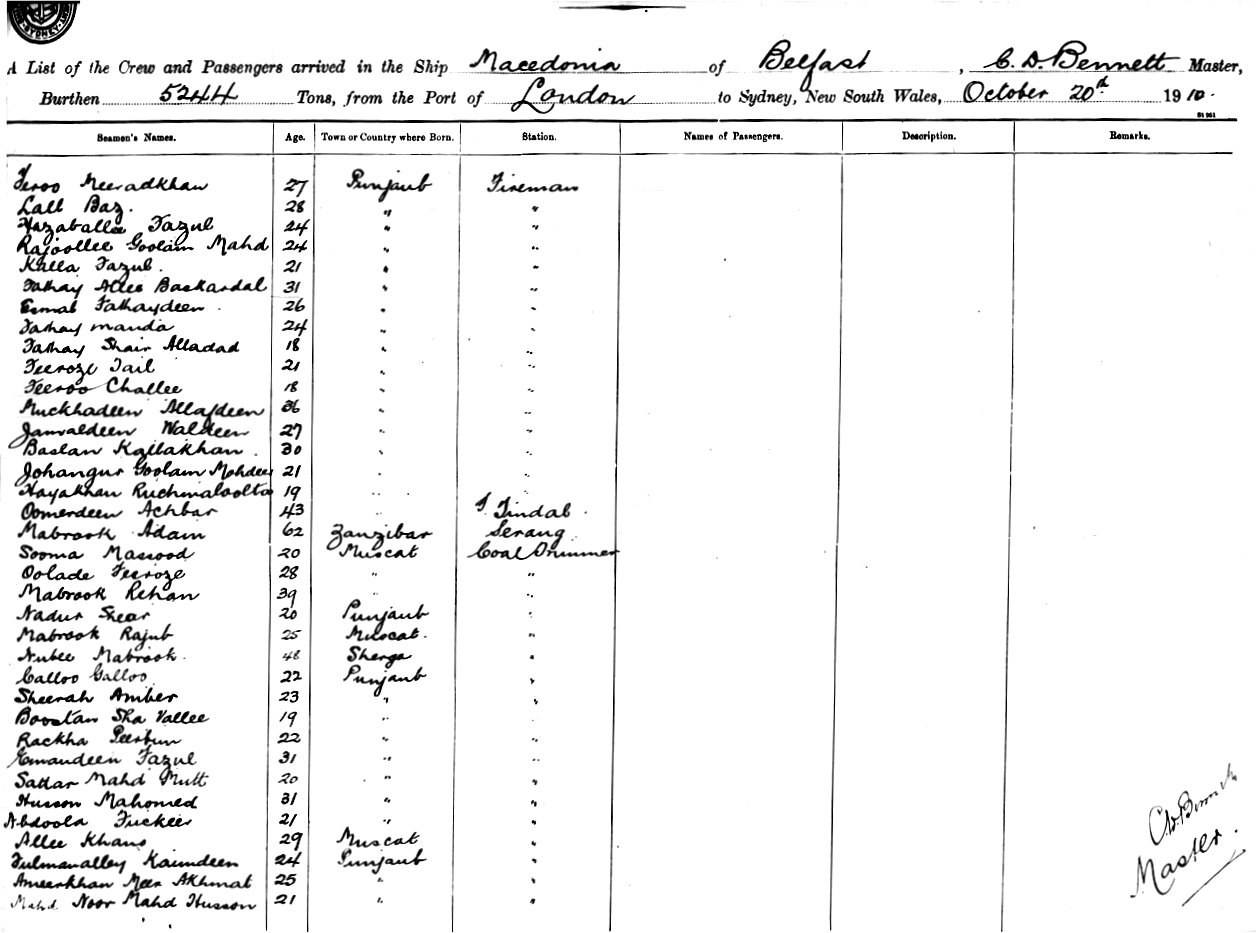 SYDNEY
A List of the Crew and Passengers arrived in the Ship Macedonia of Belfast, C. D. Bennett Master,
Burthen 5244 Tons, from the Port of London to Sydney, New South Wales, October 20th 1910.
Seamen's Names. Age. Town or Country where Born. Station. Names of Passengers. Description. Remarks.
Feroo Meeradkhan 27 Punjaub Fireman
Lall Baz. 28 " "
Fazaballee Fazul 24 " "
Rajoollee Goolam Mahd 24 " "
Kalla Fazul. 21 " "
Fathay Allee Baskardal 31 " "
Esmal Fathaydeen. 26 " "
Fathay manda 24 " "
Fathay Shair Alladad 18 " "
Feeroze Jail 21 " "
Feeroo Challee 18 " "
Muckhadeen Allafdeen 36 " "
Janvaldeen Waldeen 27 " "
Baslan Kallakhan. 30 " "
Johangur Goolam Mohdeen 21 " "
Hayakhan 19 " "
Oomerdeen Achbar 43 " Tindal.
Mabrook Adam 62 Zanzibar Serang
Sooma Massood 20 Muscat Coal Trimmer
Oolade Feeroze 28 " "
Mabrook Rehan 39 " "
Nadur Shear 20 Punjaub "
Mabrook Rajub 25 Muscat. "
Nubee Mabrook. 48 Sherga "
Calloo Galloo 22 Punjaub "
Sheerah Amber 23 " "
Boostan Sha Vallee 19 " "
Rackha Peerbun 22 " "
Emaudeen Fazul 31 " "
Sattar Mahd Mutt 20 " "
Husson Mahomed 31 " "
Abdoola Fuckeer 21 " "
Allee Khans 29 Muscat "
Fulmanalley Kaimdeen 24 Punjaub "
Ameerkhan Meer Akhmat 25 " "
Mahd. Noor Mahd Husson 21 " "
C. D. Bennett
Master.